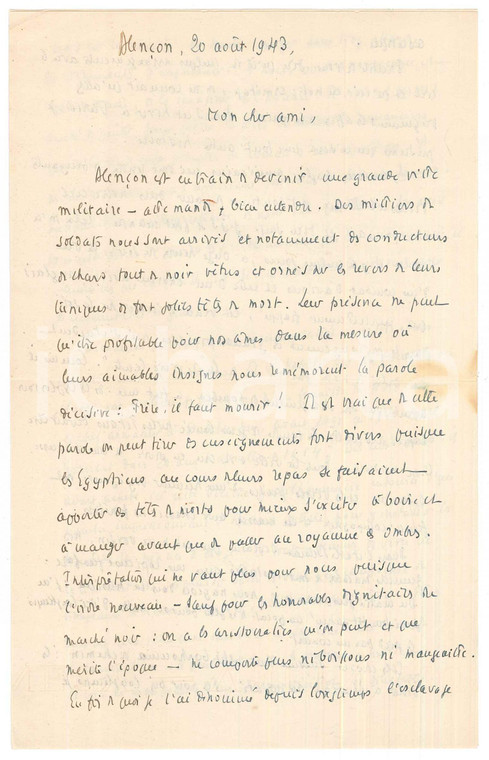 Alençon, 20 août 1943,
Mon cher ami,
Alençon est en train de devenir une grande ville
militaire – allemande, bien entendu. Des milliers de
soldats nous sont arrivés et notamment des conducteurs
de chars tout de noir vêtus et ornés sur les revers de leurs
tuniques de fort jolies têtes de mort. Leur présence ne peut
qu'être profitable pour nos âmes dans la mesure où
leurs aimables insignes nous remémorent la parole
décisive : Frère, il faut mourir ! Il est vrai que de cette
parole on peut tirer des enseignements fort divers puisque
les Egyptiens au cours de leurs repas se faisaient
apporter des têtes de morts pour mieux s'exciter à boire et
à manger avant que de passer au royaume des ombres.
Interprétation qui ne vaut plus pour nous puisque
l'ordre nouveau – sauf pour les honorables dignitaires du
marché noir : on a les aristocraties qu'on peut et que
mérite l'époque – ne comporte plus ni boissons ni mangeaille.
En foi de quoi je l'ai dénommé depuis longtemps l'esclavage